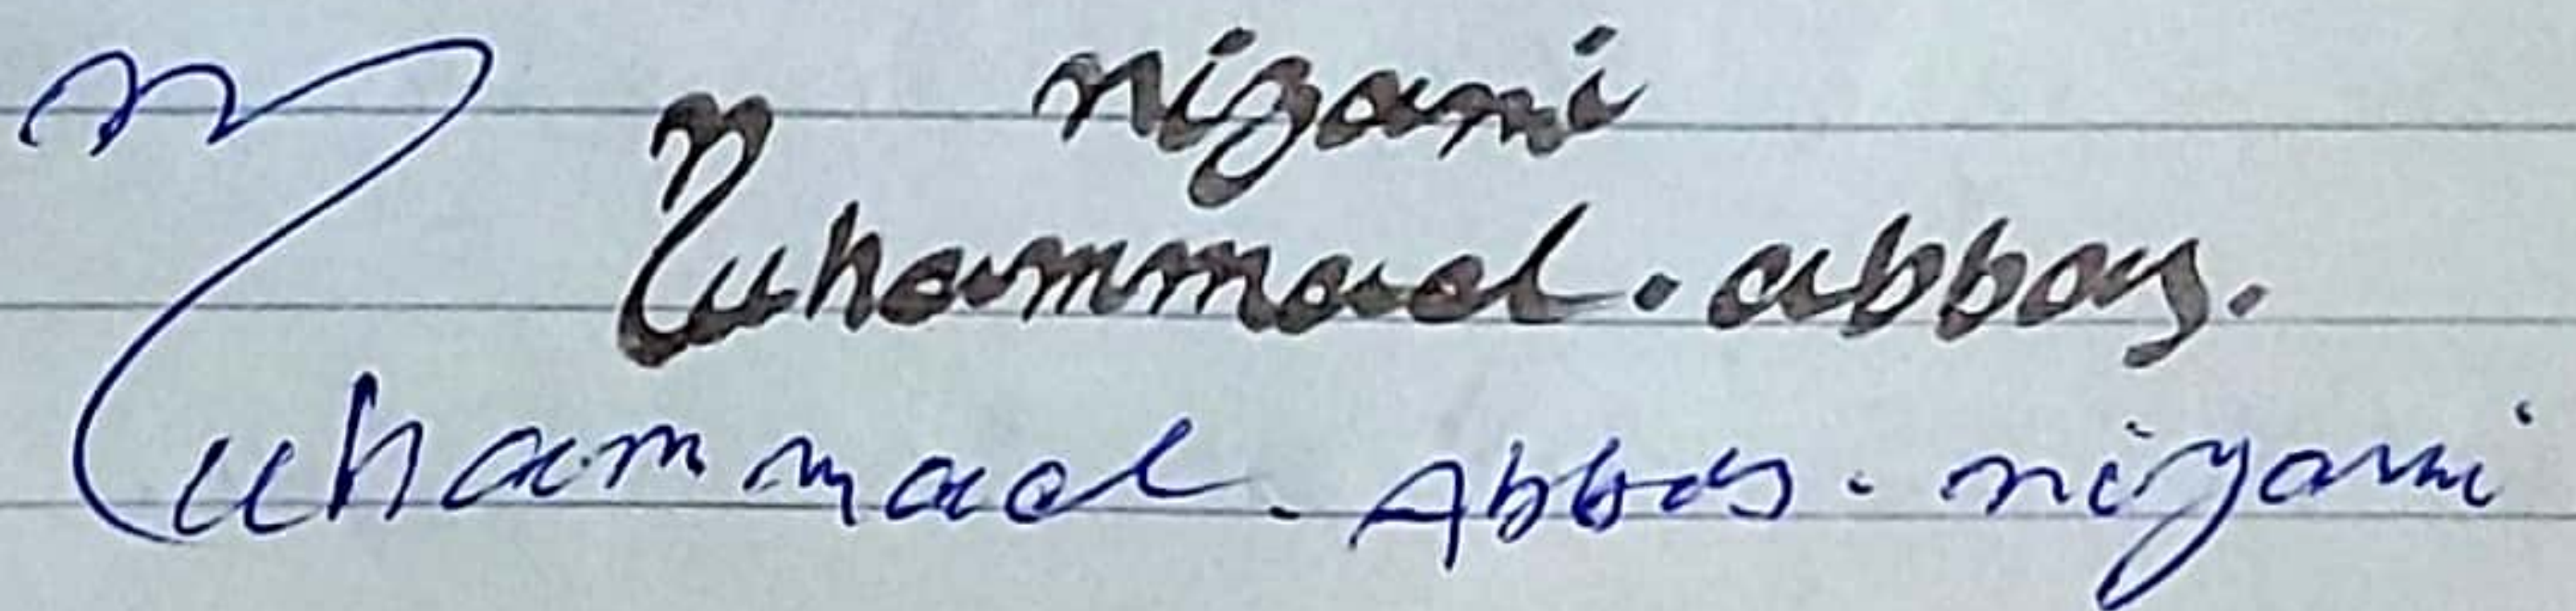 nizami
Muhammad . abbas.
Muhammad . Abbas . nizami